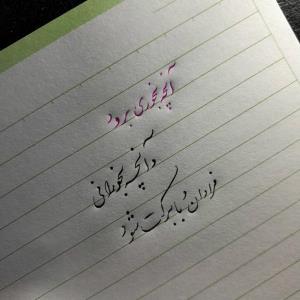 آنچه بخوری برود
و آنچه بخورانی
فراوان و با برکت شود